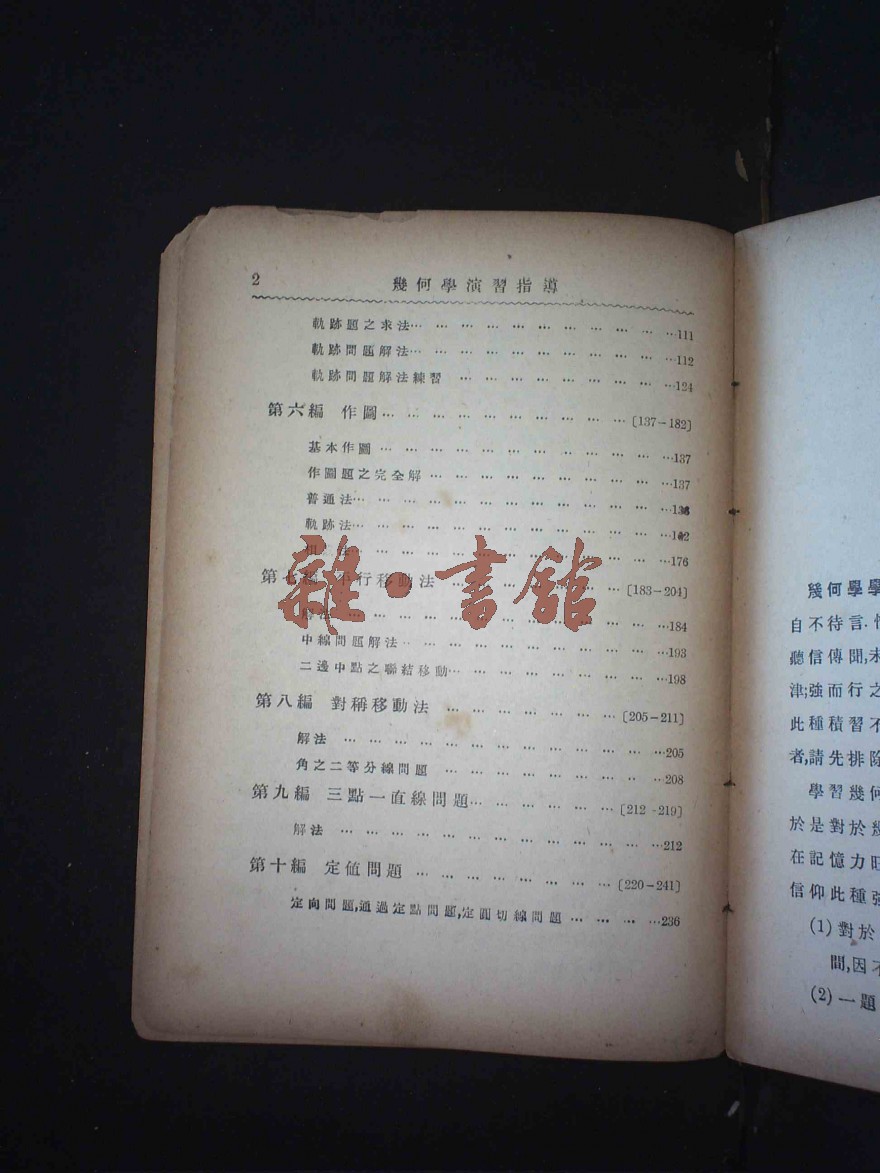 2
幾何學演習指導
軌跡題之求法… … … … … … … … … … …111
軌跡問題解法… … … … … … … … … … …112
軌跡問題解法練習 … … … … … … … … …124
第六編 作圖… … … … … … … … … … [137-182]
基本作圖 … … … … … … … … … … … …137
作圖題之完全解 … … … … … … … … … …137
普通法… … … … … … … … … … … … …
軌跡法… … … … … … … … … … … … …
… … … … …176
行移動法 … … … … … … … [183-204]
… … … … … … … …184
中線問題解法… … … … … … … … … … …193
二邊中點之聯結移動… … … … … … … … …198
第八編 對稱移動法 … … … … … … … [205-211]
解法 … … … … … … … … … … … … …205
角之二等分線問題 … … … … … … … … …208
第九編 三點一直線問題… … … … … … [212-219]
解法 … … … … … … … … … … … … …212
第十編 定值問題 … … … … … … … … [220-241]
定向問題,通過定點問題,定圓切線問題 … … … …236
雜·書館
幾何學學
自不待言.
聽信傳聞,未
津;強而行之
此種積習不
者,請先排除
學習幾何
於是對於幾
在記憶力旺
信仰此種強
(1) 對於
間,因不
(2) 一題